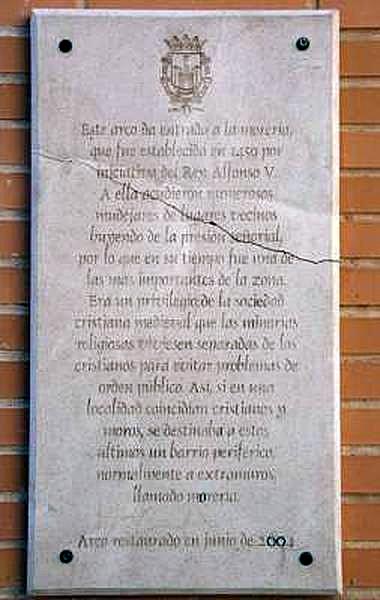 Este arco da entrada a la morería,
que fue establecida en 1450 por
iniciativa del Rey Alfonso V.
A ella acudieron numerosos
mudéjares de lugares vecinos
huyendo de la presión señorial,
por lo que en su tiempo fue una de
las más importantes de la zona.
Era un privilegio de la sociedad
cristiana medieval que las minorías
religiosas viviesen separadas de los
cristianos para evitar problemas de
orden público. Así, si en una
localidad coincidían cristianos y
moros, se destinaba a estos
últimos un barrio periférico,
normalmente a extramuros,
llamado morería.
Arco restaurado en junio de 2004